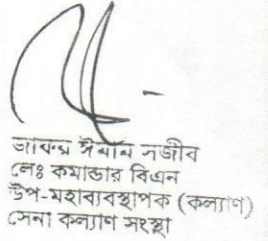 ঈমাম সজীব
লেঃ কমান্ডার বিএন
উপ-মহাব্যবস্থাপক (কল্যাণ)
সেনা কল্যাণ সংস্থা